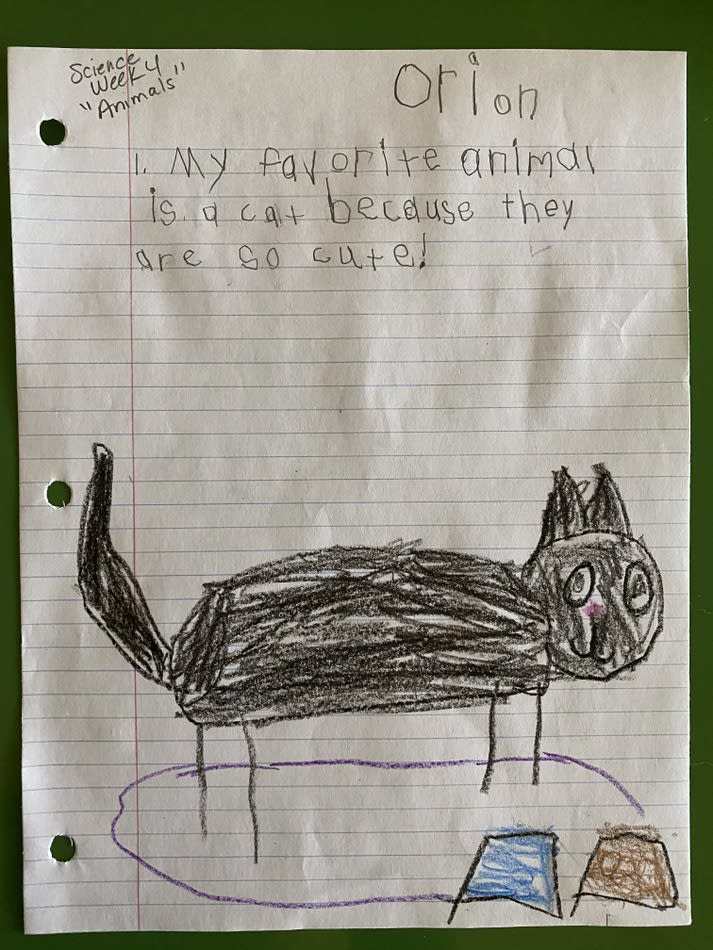 Science
Week 4
"Animals"
Orion
1. My favorite animal
is a cat because they
are so cute!